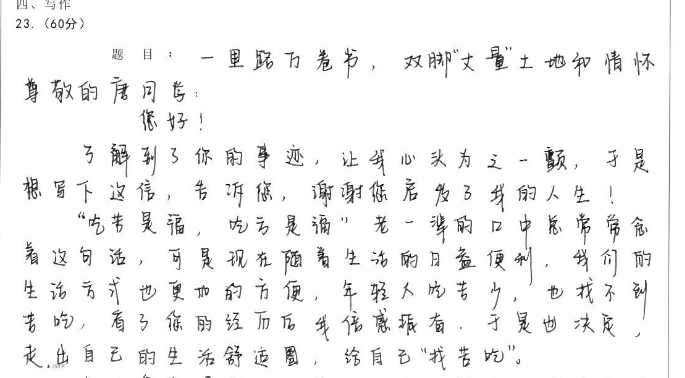 四、写作
23.（60分）
题目：一里路万卷书，双脚“丈量”土地和情怀
尊敬的唐同学：
您好！
了解到了你的事迹，让我心头为之一颤，于是
想写下这信，告诉您，谢谢您启发了我的人生！
“吃苦是福，吃亏是福”老一辈的口中总常常念
着这句话，可是现在随着生活的日益便利，我们的
生活方式也更加的方便，年轻人吃苦少，也找不到
苦吃，看了你的经历后我倍感振奋．于是也决定，
走出自己的生活舒适圈，给自己“找苦吃”。